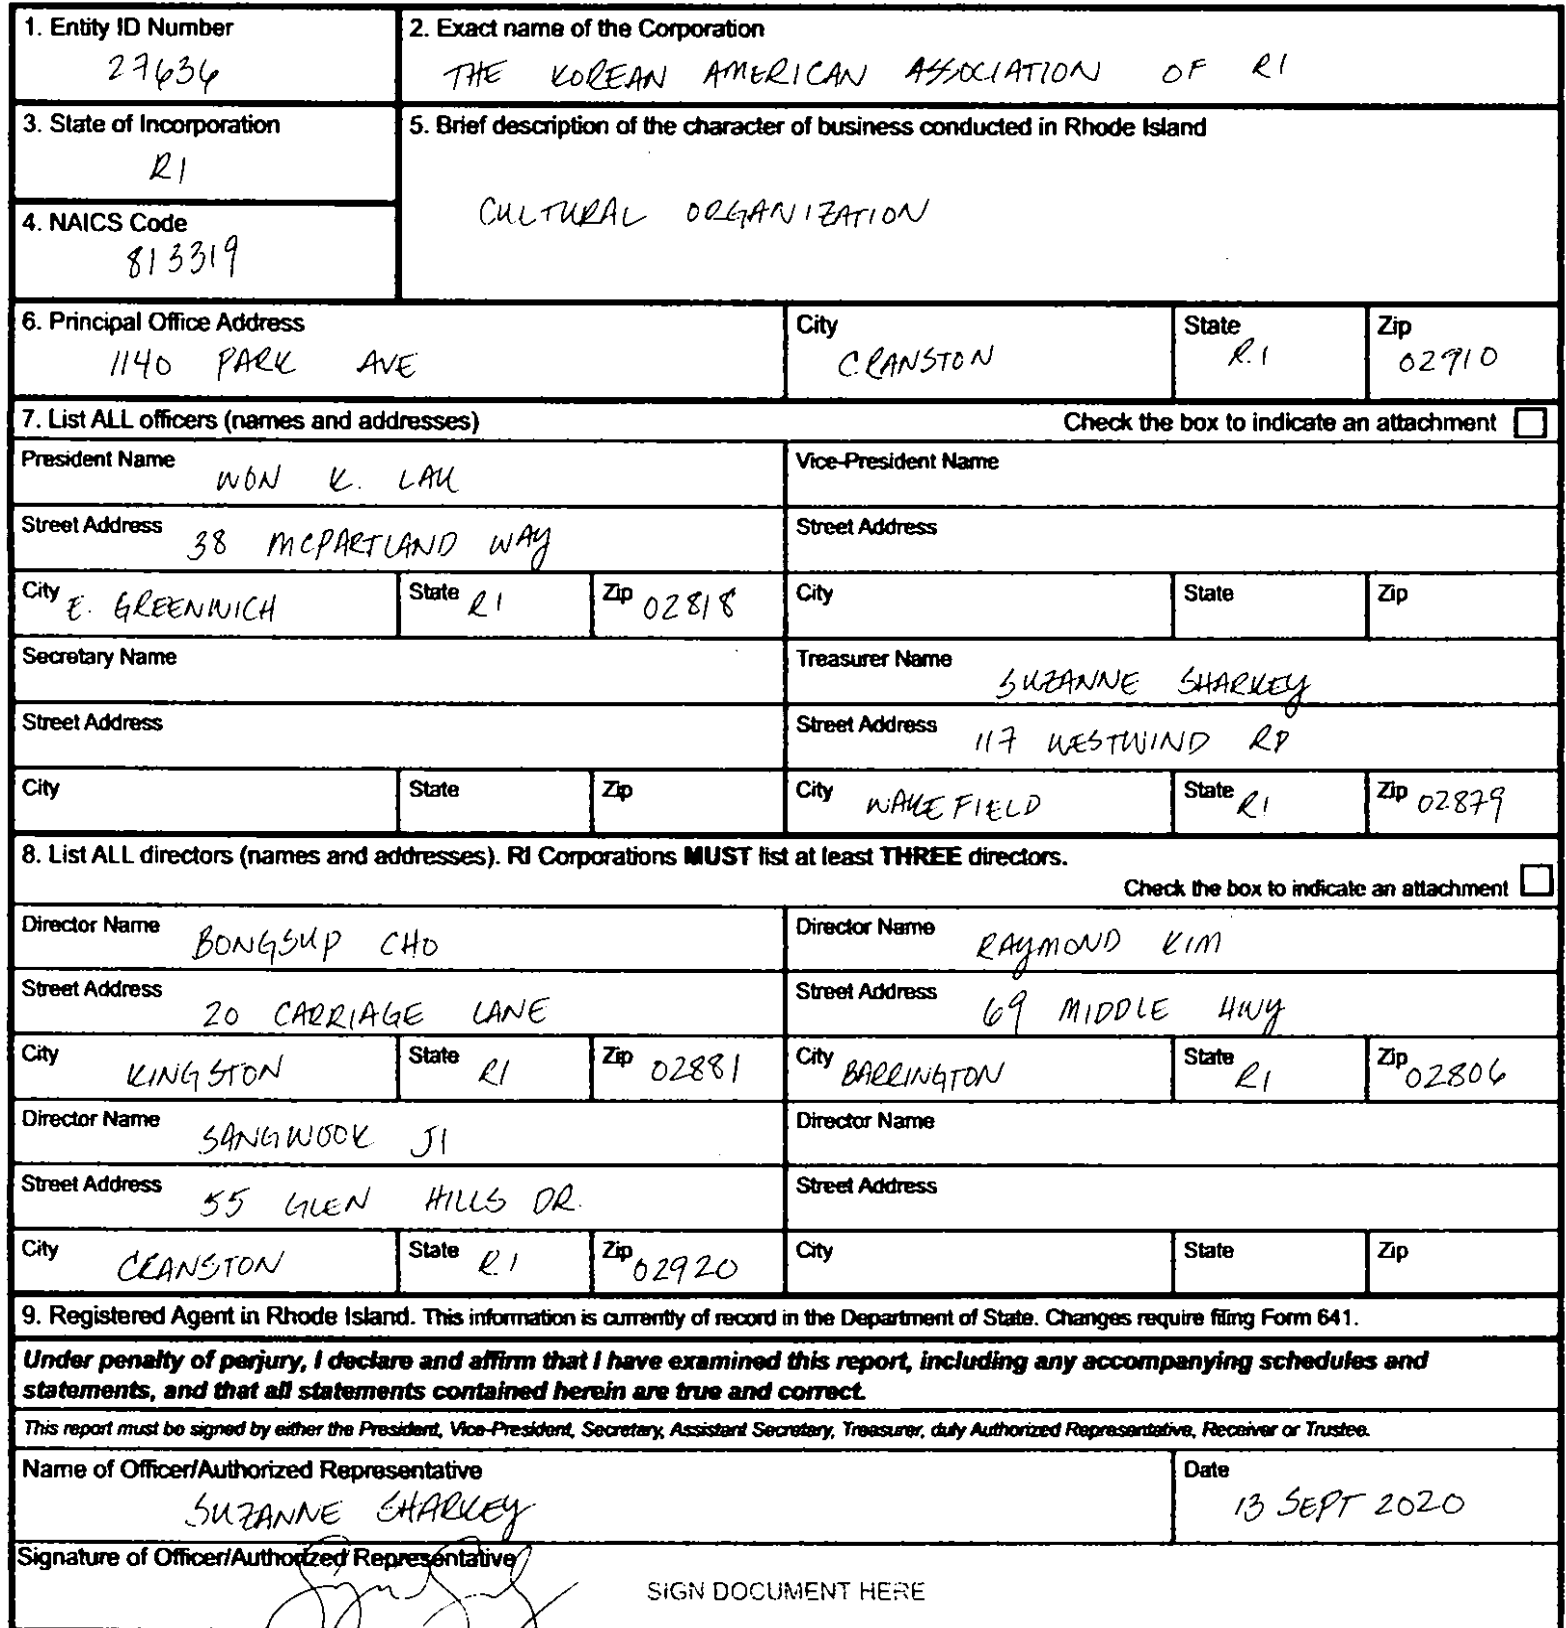 1. Entity ID Number
27636
2. Exact name of the Corporation
THE KOREAN AMERICAN ASSOCIATION OF RI
3. State of Incorporation
RI
4. NAICS Code
813319
5. Brief description of the character of business conducted in Rhode Island
CULTURAL ORGANIZATION
6. Principal Office Address
1140 PARK AVE
City
CRANSTON
State
R.I
Zip
02910
7. List ALL officers (names and addresses) Check the box to indicate an attachment
President Name WON K. LAU
Vice-President Name
Street Address 38 MCPARTLAND WAY
Street Address
City E. GREENWICH State RI Zip 02818
City State Zip
Secretary Name
Treasurer Name SUZANNE SHARKEY
Street Address
Street Address 117 WESTWIND RD
City State Zip
City WAKEFIELD State RI Zip 02879
8. List ALL directors (names and addresses). RI Corporations MUST list at least THREE directors.
Check the box to indicate an attachment
Director Name BONGSUP CHO
Director Name RAYMOND KIM
Street Address 20 CARRIAGE LANE
Street Address 69 MIDDLE HWY
City KINGSTON State RI Zip 02881
City BARRINGTON State RI Zip 02806
Director Name SANGWOOK JI
Director Name
Street Address 55 GLEN HILLS DR.
Street Address
City CRANSTON State RI Zip 02920
City State Zip
9. Registered Agent in Rhode Island. This information is currently of record in the Department of State. Changes require filing Form 641.
Under penalty of perjury, I declare and affirm that I have examined this report, including any accompanying schedules and
statements, and that all statements contained herein are true and correct.
This report must be signed by either the President, Vice-President, Secretary, Assistant Secretary, Treasurer, duly Authorized Representative, Receiver or Trustee.
Name of Officer/Authorized Representative
SUZANNE SHARKEY
Date
13 SEPT 2020
Signature of Officer/Authorized Representative
SIGN DOCUMENT HERE